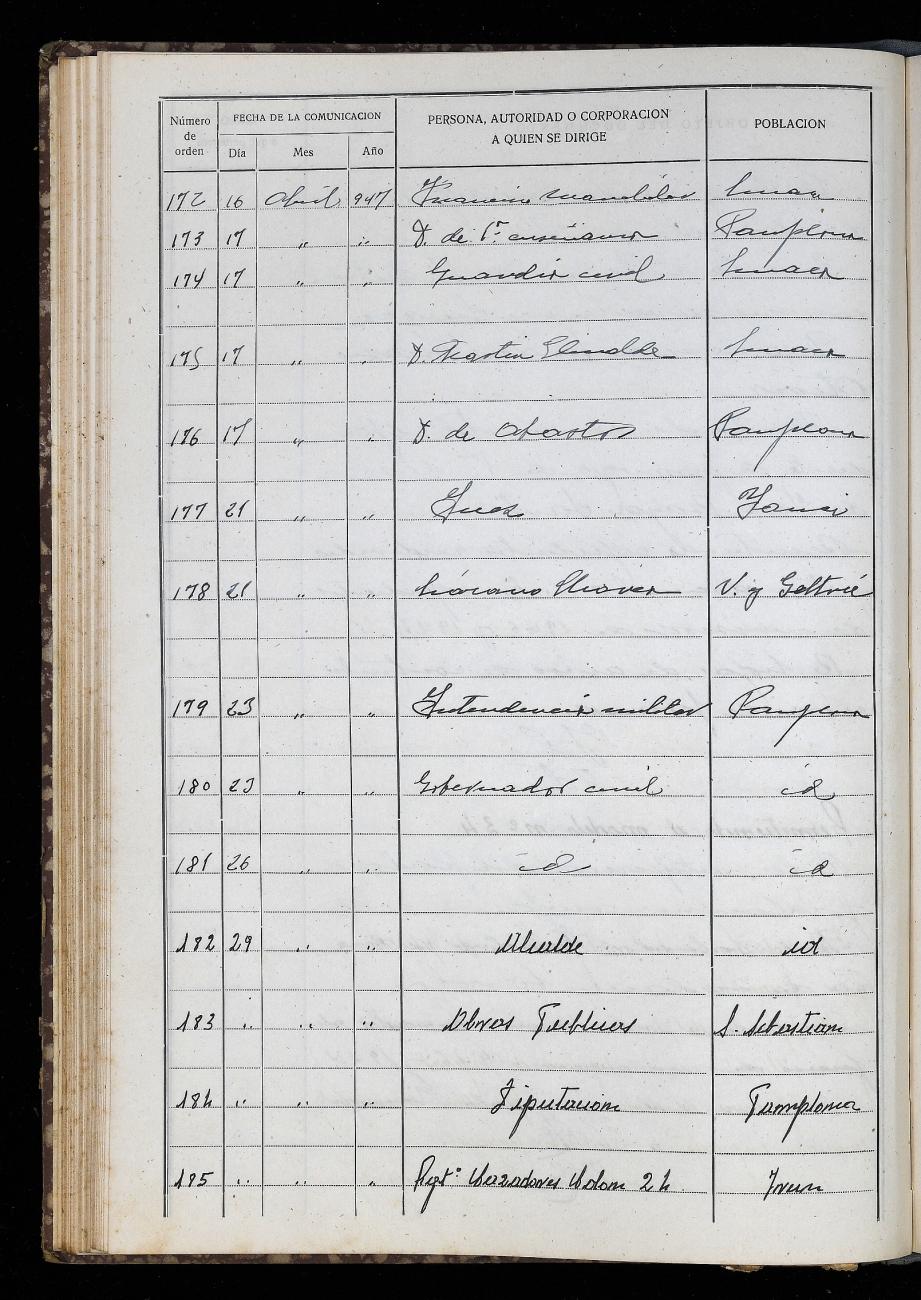 Número de orden FECHA DE LA COMUNICACION PERSONA, AUTORIDAD O CORPORACION A QUIEN SE DIRIGE POBLACION
Día Mes Año
172 16 Abril 947
173 17 " " D. de 1ª enseñanza Pamplona
174 17 " " Guardia civil
175 17 " " D. Martin Elizalde
176 17 " " D. de Abastos Pamplona
177 21 " " Juez
178 21 " " V. y Geltrú
179 23 " " Intendencia militar Pamplona
180 23 " " Gobernador civil id
181 26 " " id id
182 29 " " Alcalde id
183 " " " Obras Publicas S. Sebastian
184 " " " Diputacion Pamplona
185 " " " Rgtº Cazadores Colon 24 Irun